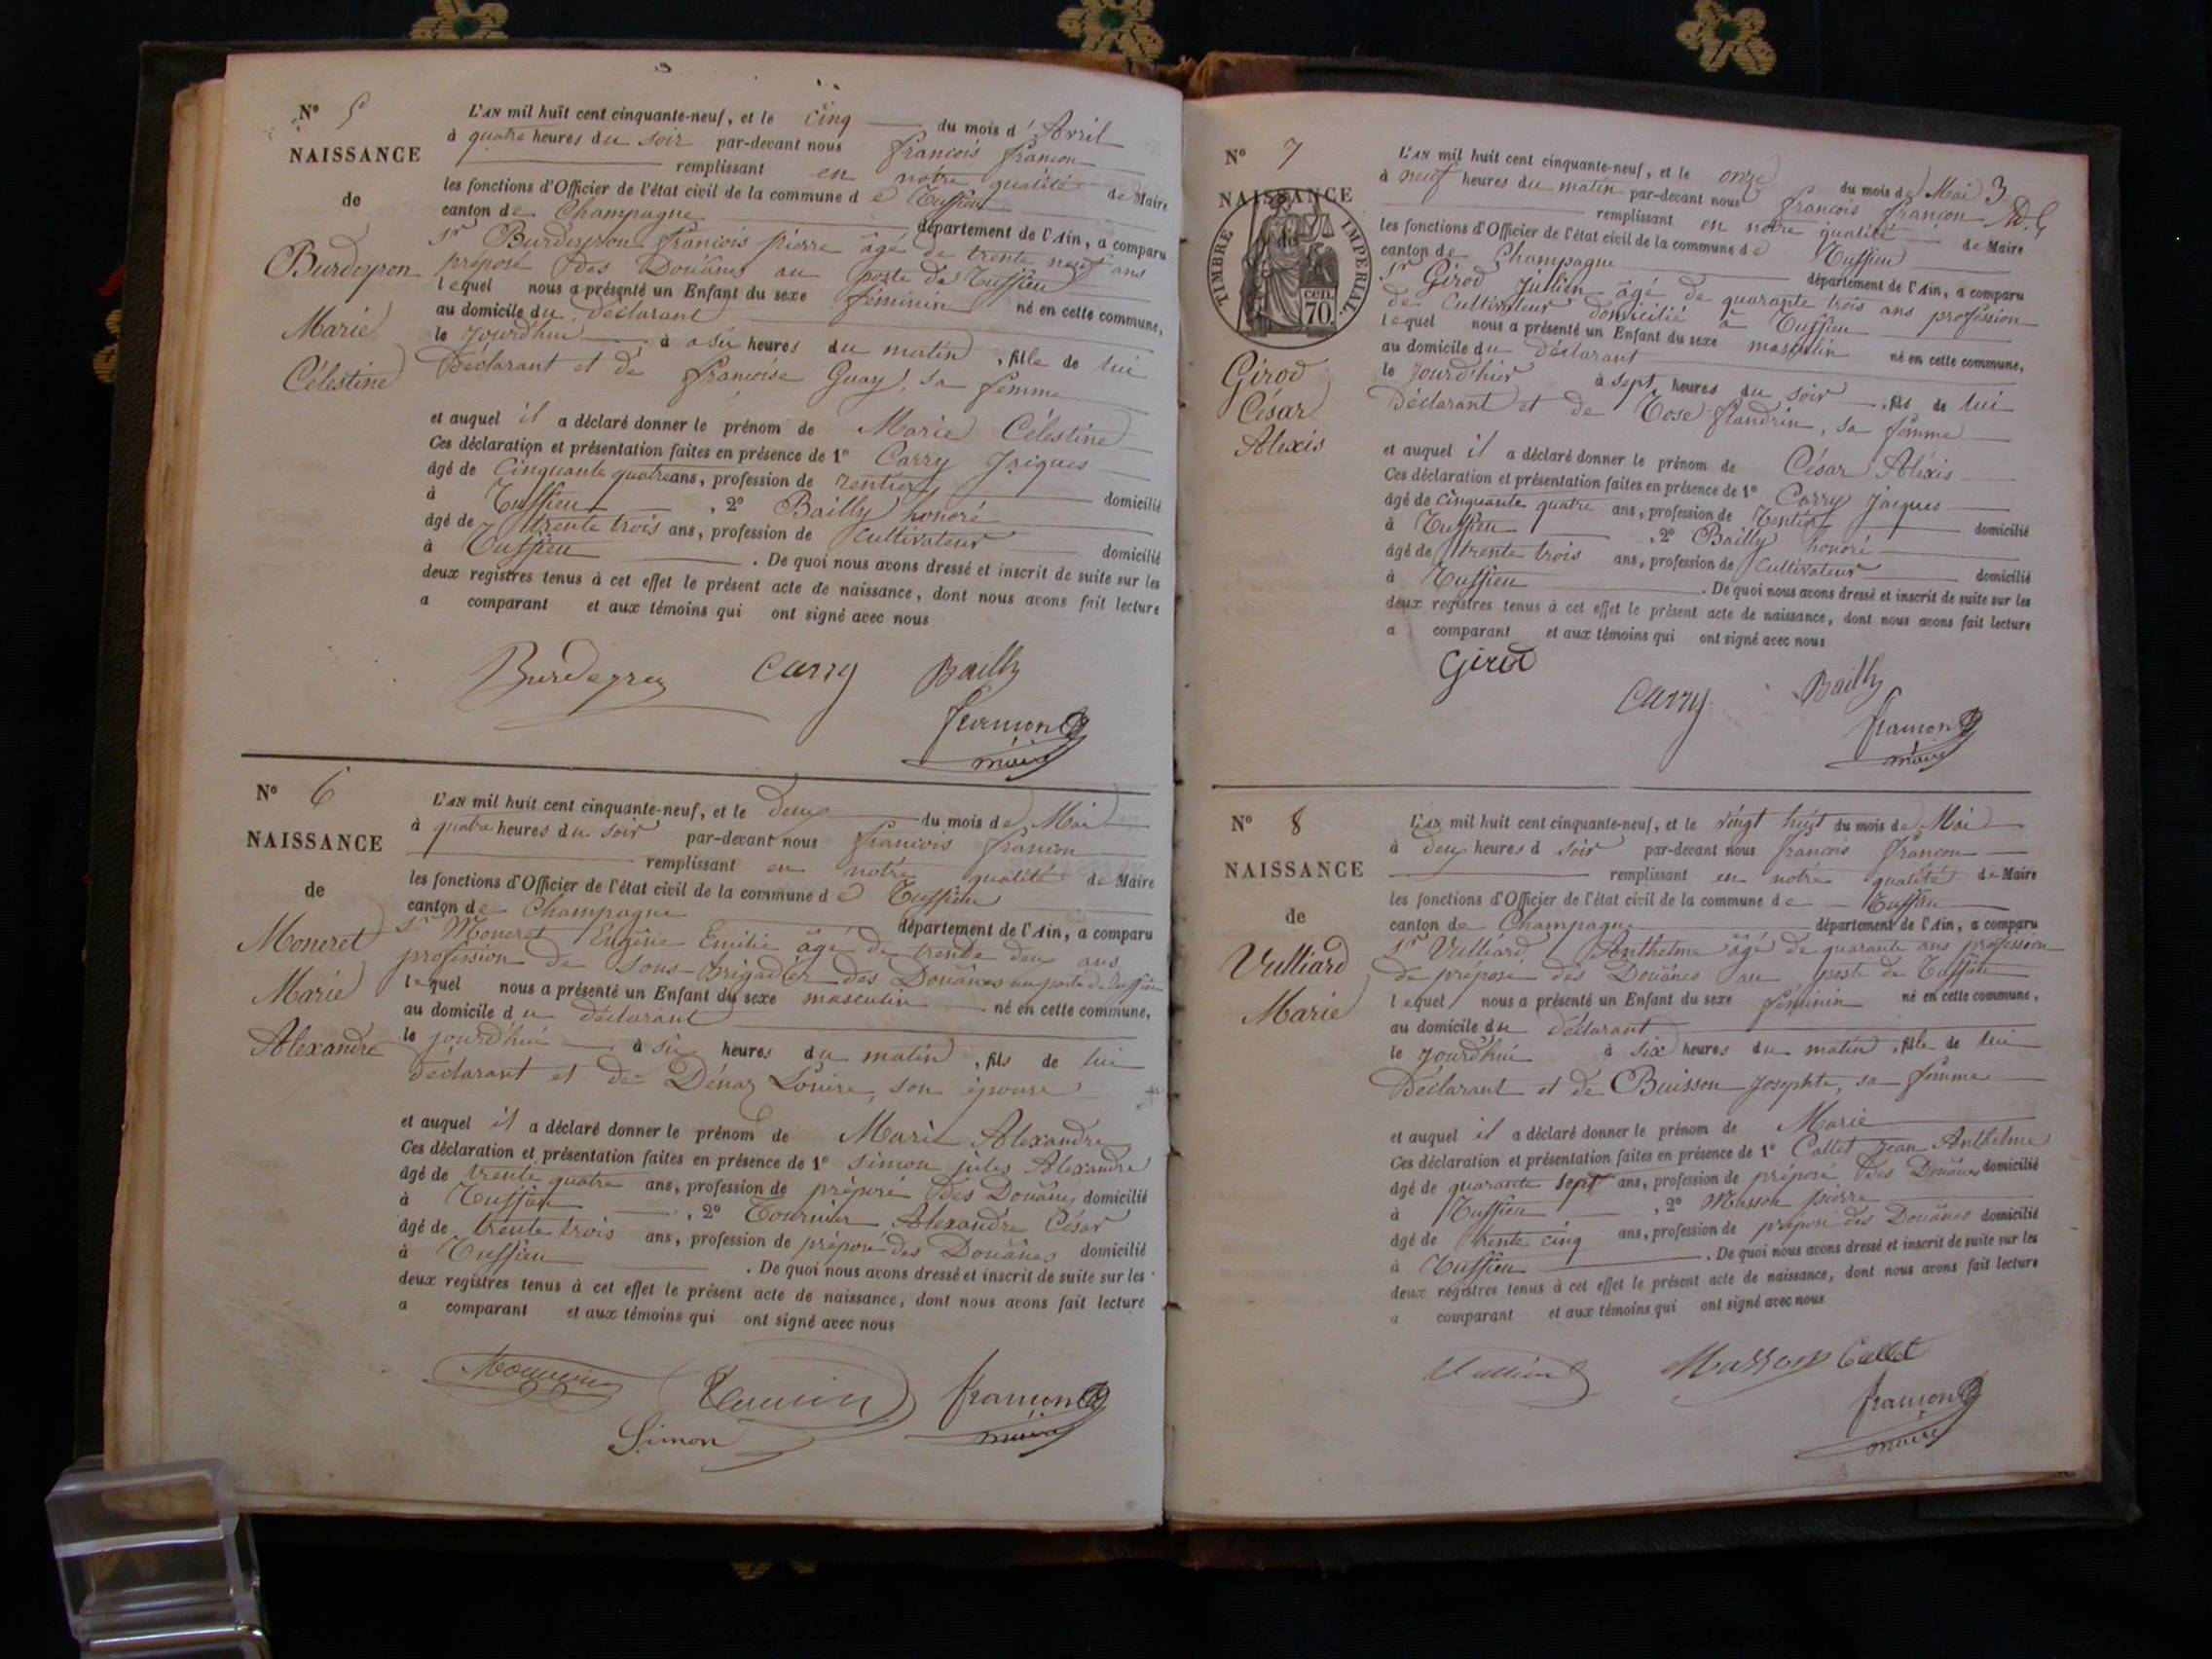 Nº 5
NAISSANCE
de
Burdeyron
Marie
Célestine
L'AN mil huit cent cinquante-neuf, et le cinq du mois d' Avril
à quatre heures du soir par-devant nous françois françon
remplissant en nôtre qualité de Maire
les fonctions d'Officier de l'état civil de la commune de
canton de Champagne département de l'Ain, a comparu
Sr Burdeyron françois pierre âgé de trente neuf ans
préposé des Douânes au poste de
lequel nous a présenté un Enfant du sexe féminin né en cette commune,
au domicile du déclarant
le jourd'hui à six heures du matin, fille de lui
Déclarant et de françoise Guay, sa femme
et auquel il a déclaré donner le prénom de Marie Célestine
Ces déclaration et présentation faites en présence de 1º Carry Jaiques
âgé de cinquante quatre ans, profession de rentier
à domicilié
, 2º Bailly honoré
âgé de trente trois ans, profession de cultivateur
à domicilié
. De quoi nous avons dressé et inscrit de suite sur les
deux registres tenus à cet effet le présent acte de naissance, dont nous avons fait lecture
a comparant et aux témoins qui ont signé avec nous
Carry Bailly
françon
maire
Nº 6
NAISSANCE
de
Moncret
Marie
Alexandre
L'AN mil huit cent cinquante-neuf, et le deux du mois de Mai
à quatre heures du soir par-devant nous françois françon
remplissant en nôtre qualité de Maire
les fonctions d'Officier de l'état civil de la commune de
canton de Champagne département de l'Ain, a comparu
Sr Moncret Eugène Emilie âgé de trente deux ans
profession de Sous-Brigadier des Douânes au poste de
lequel nous a présenté un Enfant du sexe masculin né en cette commune,
au domicile du déclarant
le jourd'hui à six heures du matin, fils de lui
déclarant et de Dénaz Louise, son épouse
et auquel il a déclaré donner le prénom de Marie Alexandre
Ces déclaration et présentation faites en présence de 1º Simon jules Alexandre
âgé de trente quatre ans, profession de préposé des Douânes domicilié
à , 2º Tournier Alexandre César
âgé de trente trois ans, profession de préposé des Douânes domicilié
à . De quoi nous avons dressé et inscrit de suite sur les
deux registres tenus à cet effet le présent acte de naissance, dont nous avons fait lecture
a comparant et aux témoins qui ont signé avec nous
françon
Simon maire
Nº 7
NAISSANCE
de
TIMBRE IMPERIAL
cen. 70.
Girod
César
Alexis
3
L'AN mil huit cent cinquante-neuf, et le onze du mois de Mai
à neuf heures du matin par-devant nous françois françon
remplissant en nôtre qualité de Maire
les fonctions d'Officier de l'état civil de la commune de
canton de Champagne département de l'Ain, a comparu
Sr Girod Julien âgé de quarante trois ans profession
de cultivateur domicilié à
lequel nous a présenté un Enfant du sexe masculin né en cette commune,
au domicile du déclarant
le jourd'hier à sept heures du soir, fils de lui
Déclarant et de Rose flandrin, sa femme
et auquel il a déclaré donner le prénom de César Aléxis
Ces déclaration et présentation faites en présence de 1º Carry Jaiques
âgé de cinquante quatre ans, profession de Rentier
à , 2º Bailly honoré domicilié
âgé de trente trois ans, profession de cultivateur
à domicilié
. De quoi nous avons dressé et inscrit de suite sur les
deux registres tenus à cet effet le présent acte de naissance, dont nous avons fait lecture
a comparant et aux témoins qui ont signé avec nous
Girod
Carry Bailly
françon
maire
Nº 8
NAISSANCE
de
Vulliard
Marie
L'AN mil huit cent cinquante-neuf, et le vingt huit du mois de Mai
à deux heures d soir par-devant nous françois françon
remplissant en notre qualité de Maire
les fonctions d'Officier de l'état civil de la commune de
canton de Champagne département de l'Ain, a comparu
Sr Vulliard Anthelme âgé de quarante ans profession
de préposé des Douânes au poste de
lequel nous a présenté un Enfant du sexe féminin né en cette commune,
au domicile du déclarant
le jourd'hui à six heures du matin, fille de lui
Déclarant et de Buisson Josephte, sa femme
et auquel il a déclaré donner le prénom de Marie
Ces déclaration et présentation faites en présence de 1º Collet Jean Anthelme
âgé de quarante sept ans, profession de préposé des Douânes domicilié
à , 2º Masson pierre
âgé de trente cinq ans, profession de préposé des Douânes domicilié
à . De quoi nous avons dressé et inscrit de suite sur les
deux registres tenus à cet effet le présent acte de naissance, dont nous avons fait lecture
a comparant et aux témoins qui ont signé avec nous
Masson Collet
françon
maire